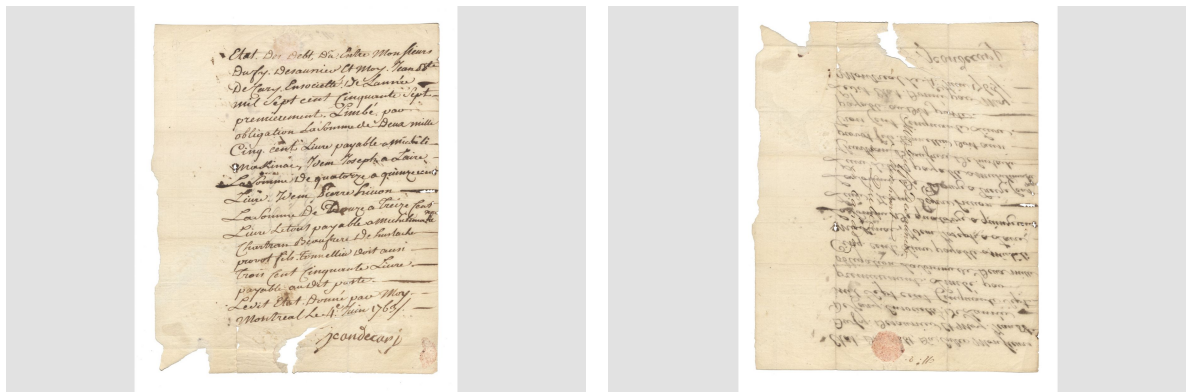 Etat. Des Debt, Du Entre Monsieurs
Dufy Desaunier Et Moy. Jean Bte
De Cary En Societté, De Lannée
mil Sept cent Cinquante Sept
premierement. Limbé, par
obligation La Somme de Deux mille
Cinq cent Livre payable a michili
makinac, Item Joseph a Laire
La Somme de quatorze a quinze cent
Livre. Item Pierre huion
La Somme De Douze a Treize Cent
Livre Le tous payable a michilimakinac
Chartran Beaufrere De Eustache
provot fils Tonnellier doit aussi
Trois Cent Cinquante Livre
payable au dit poste.
Le dit Etat. Donné par Moy
Montreal Le 4e Juin 176
jeandecarj